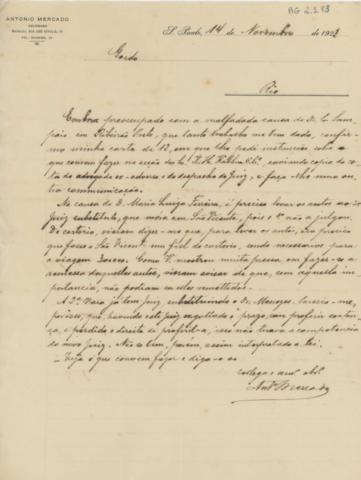 ANTONIO MERCADO
ADVOGADO
AG 2.2.93
S. Paulo, 14 de Novembro de 1923
Gordo
Rio
Embora preoccupado com a malfadada causa de D. L. Sam
paio em Ribeirão Preto, que tanto trabalho me tem dado, confir
mo minha carta de 12, em que lhe pedi instrucções sobre o
que convem fazer na acção de enviando copia de
do advogado e do despacho do Juiz, e faço-lhe uma ou
tra communicação.
Na causa de D. Maria Luiza Ferreira, é preciso levar os autos ao
Juiz substituto, que mora em São Vicente, pois o 1º não a julgou.
Do cartorio, vieram dizer-me que, para levar os autos, era preciso
que fosse a São Vicente um fiel de cartorio, sendo necessarios para
a viagem Como V. mostrou muita pressa em fazer-se a
remessa daquelles autos, vieram avisar de que, sem aquella im
portancia, não podiam ser elles remettidos.
A 2ª Vara já tem Juiz substituindo o Dr. Menezes. Parece-me,
porém, que, havendo este juiz esgottado o prazo, sem proferir senten
ça, e perdido o direito de proferil-a, isso não traria a competencia
do novo Juiz. Não se tem, porém, assim interpretado a lei.
Veja o que convem fazer e diga-o ao
collega e amº obrº
Antº Mercado